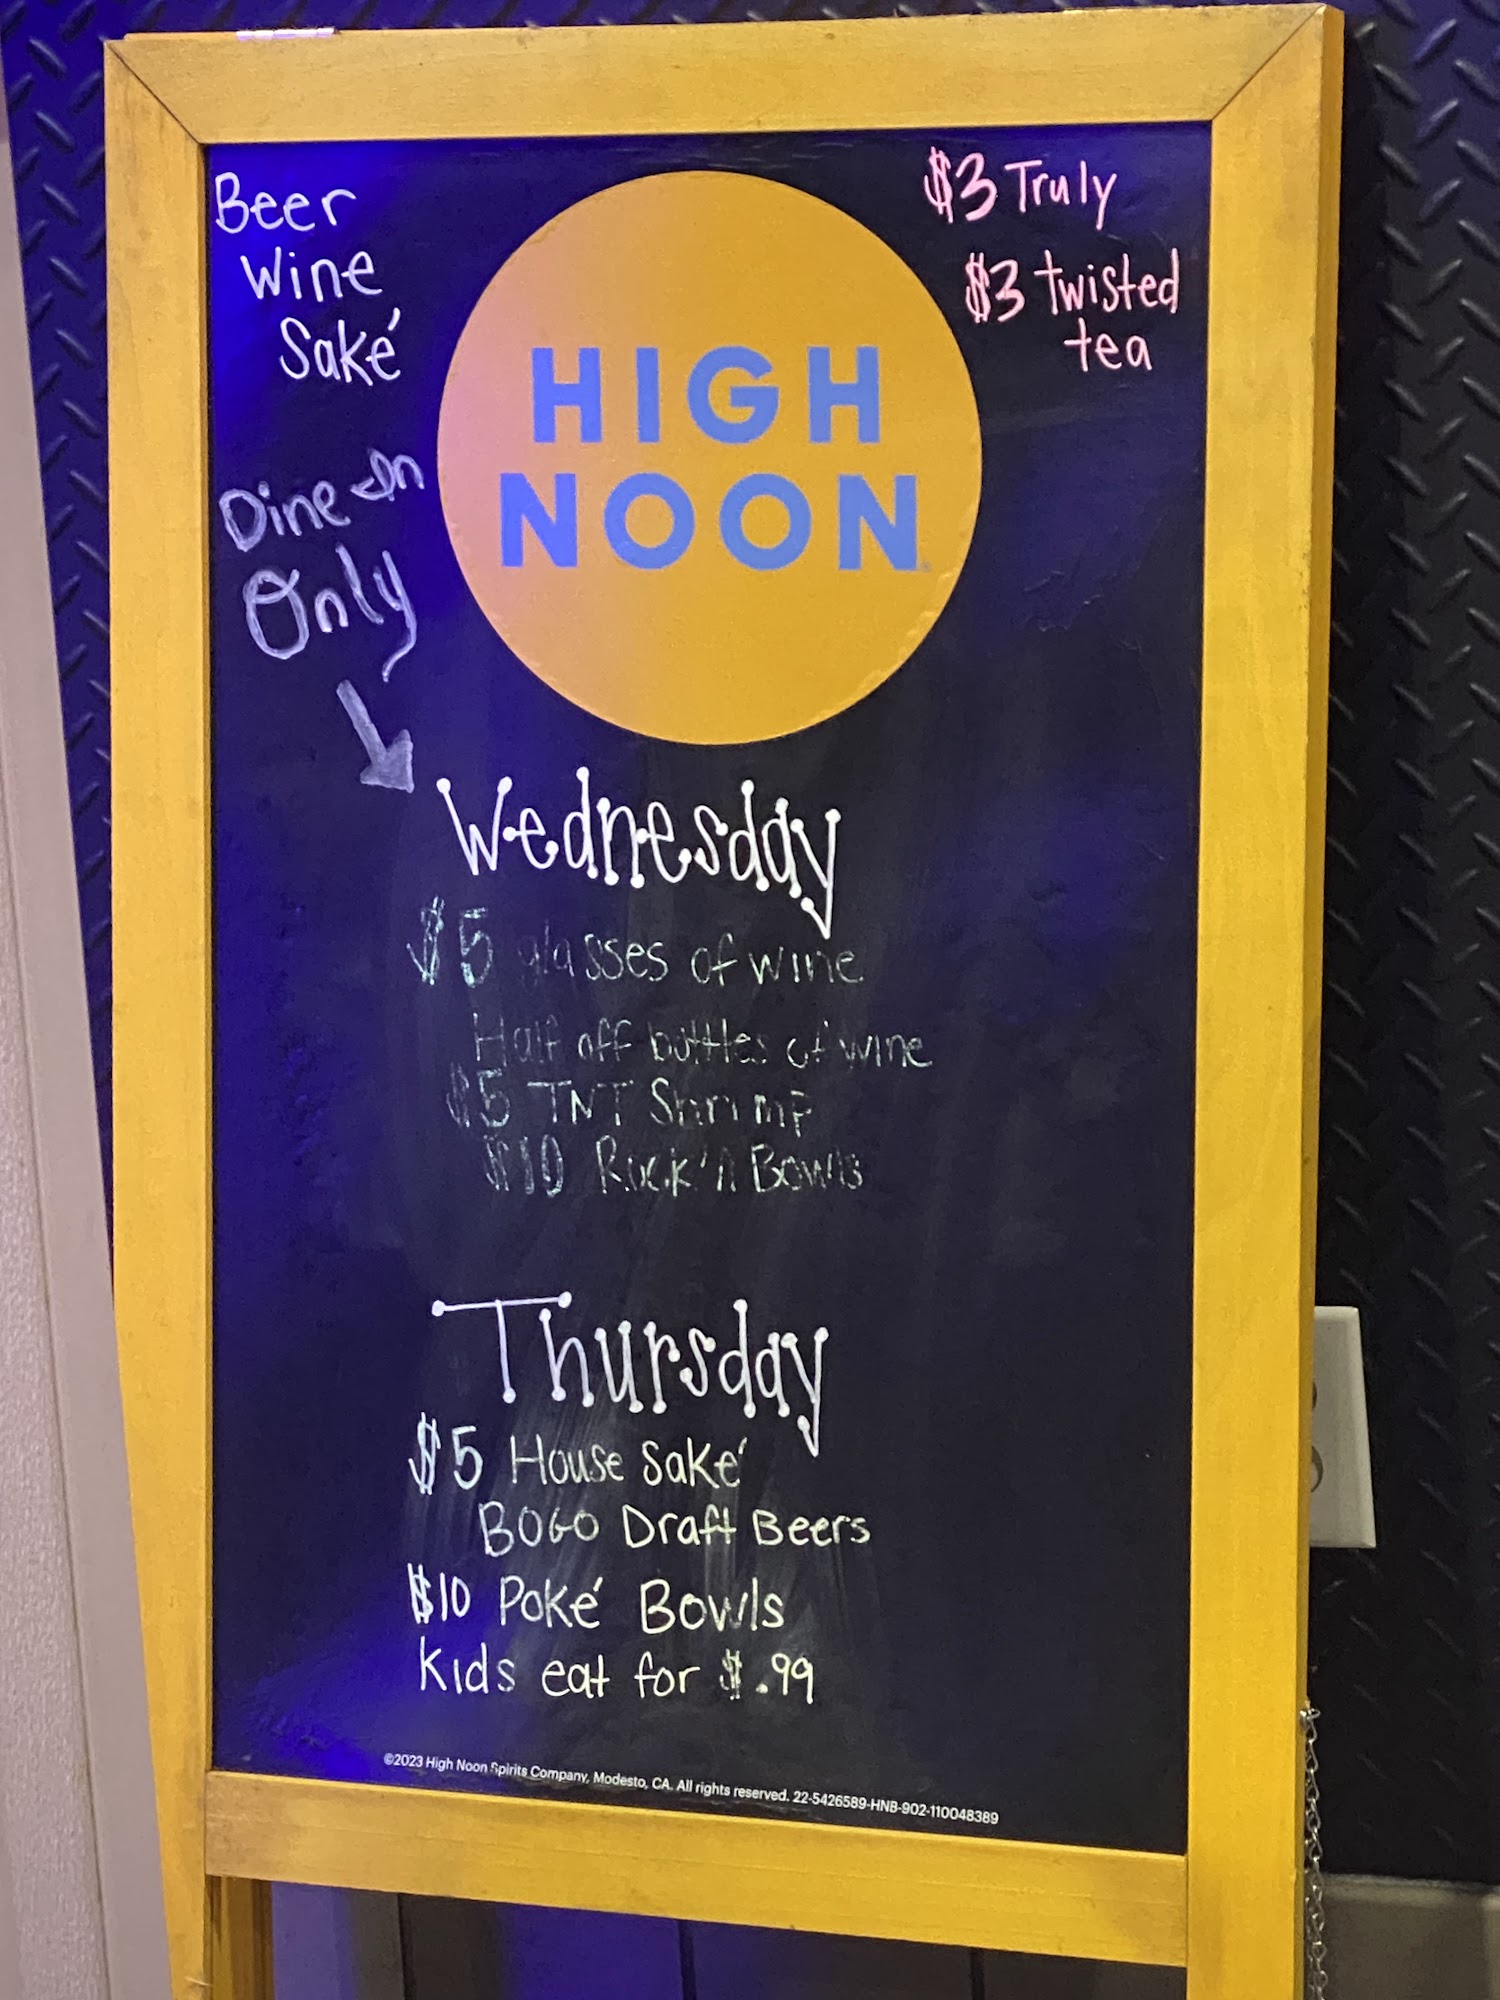 Beer
Wine
Saké
$3 Truly
$3 twisted
tea
HIGH
NOON
Dine In
Only
Wednesday
$5 glasses of wine
Half off bottles of wine
$5 TNT Shrimp
$10 Rock'n Bowls
Thursday
$5 House Saké
BOGO Draft Beers
$10 Poké Bowls
Kids eat for $.99
©2023 High Noon Spirits Company, Modesto, CA. All rights reserved. 22-5426589-HNB-902-110048389